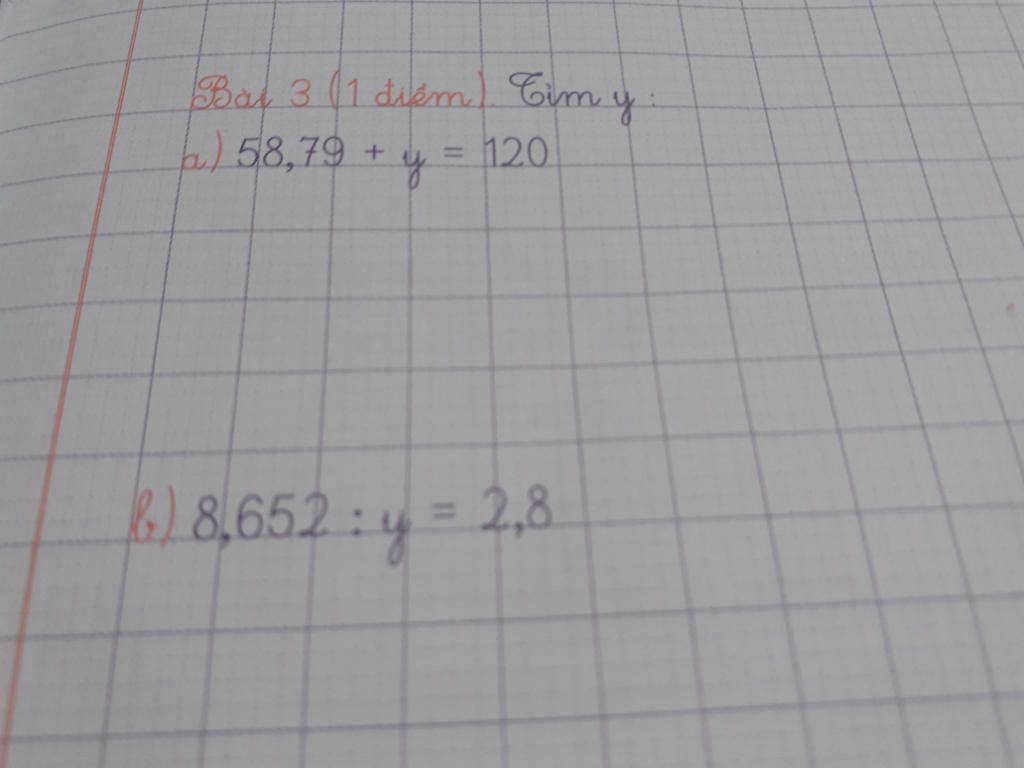 Bài 3 (1 điểm). Tìm y:
a) 58,79 + y = 120
b) 8,652 : y = 2,8